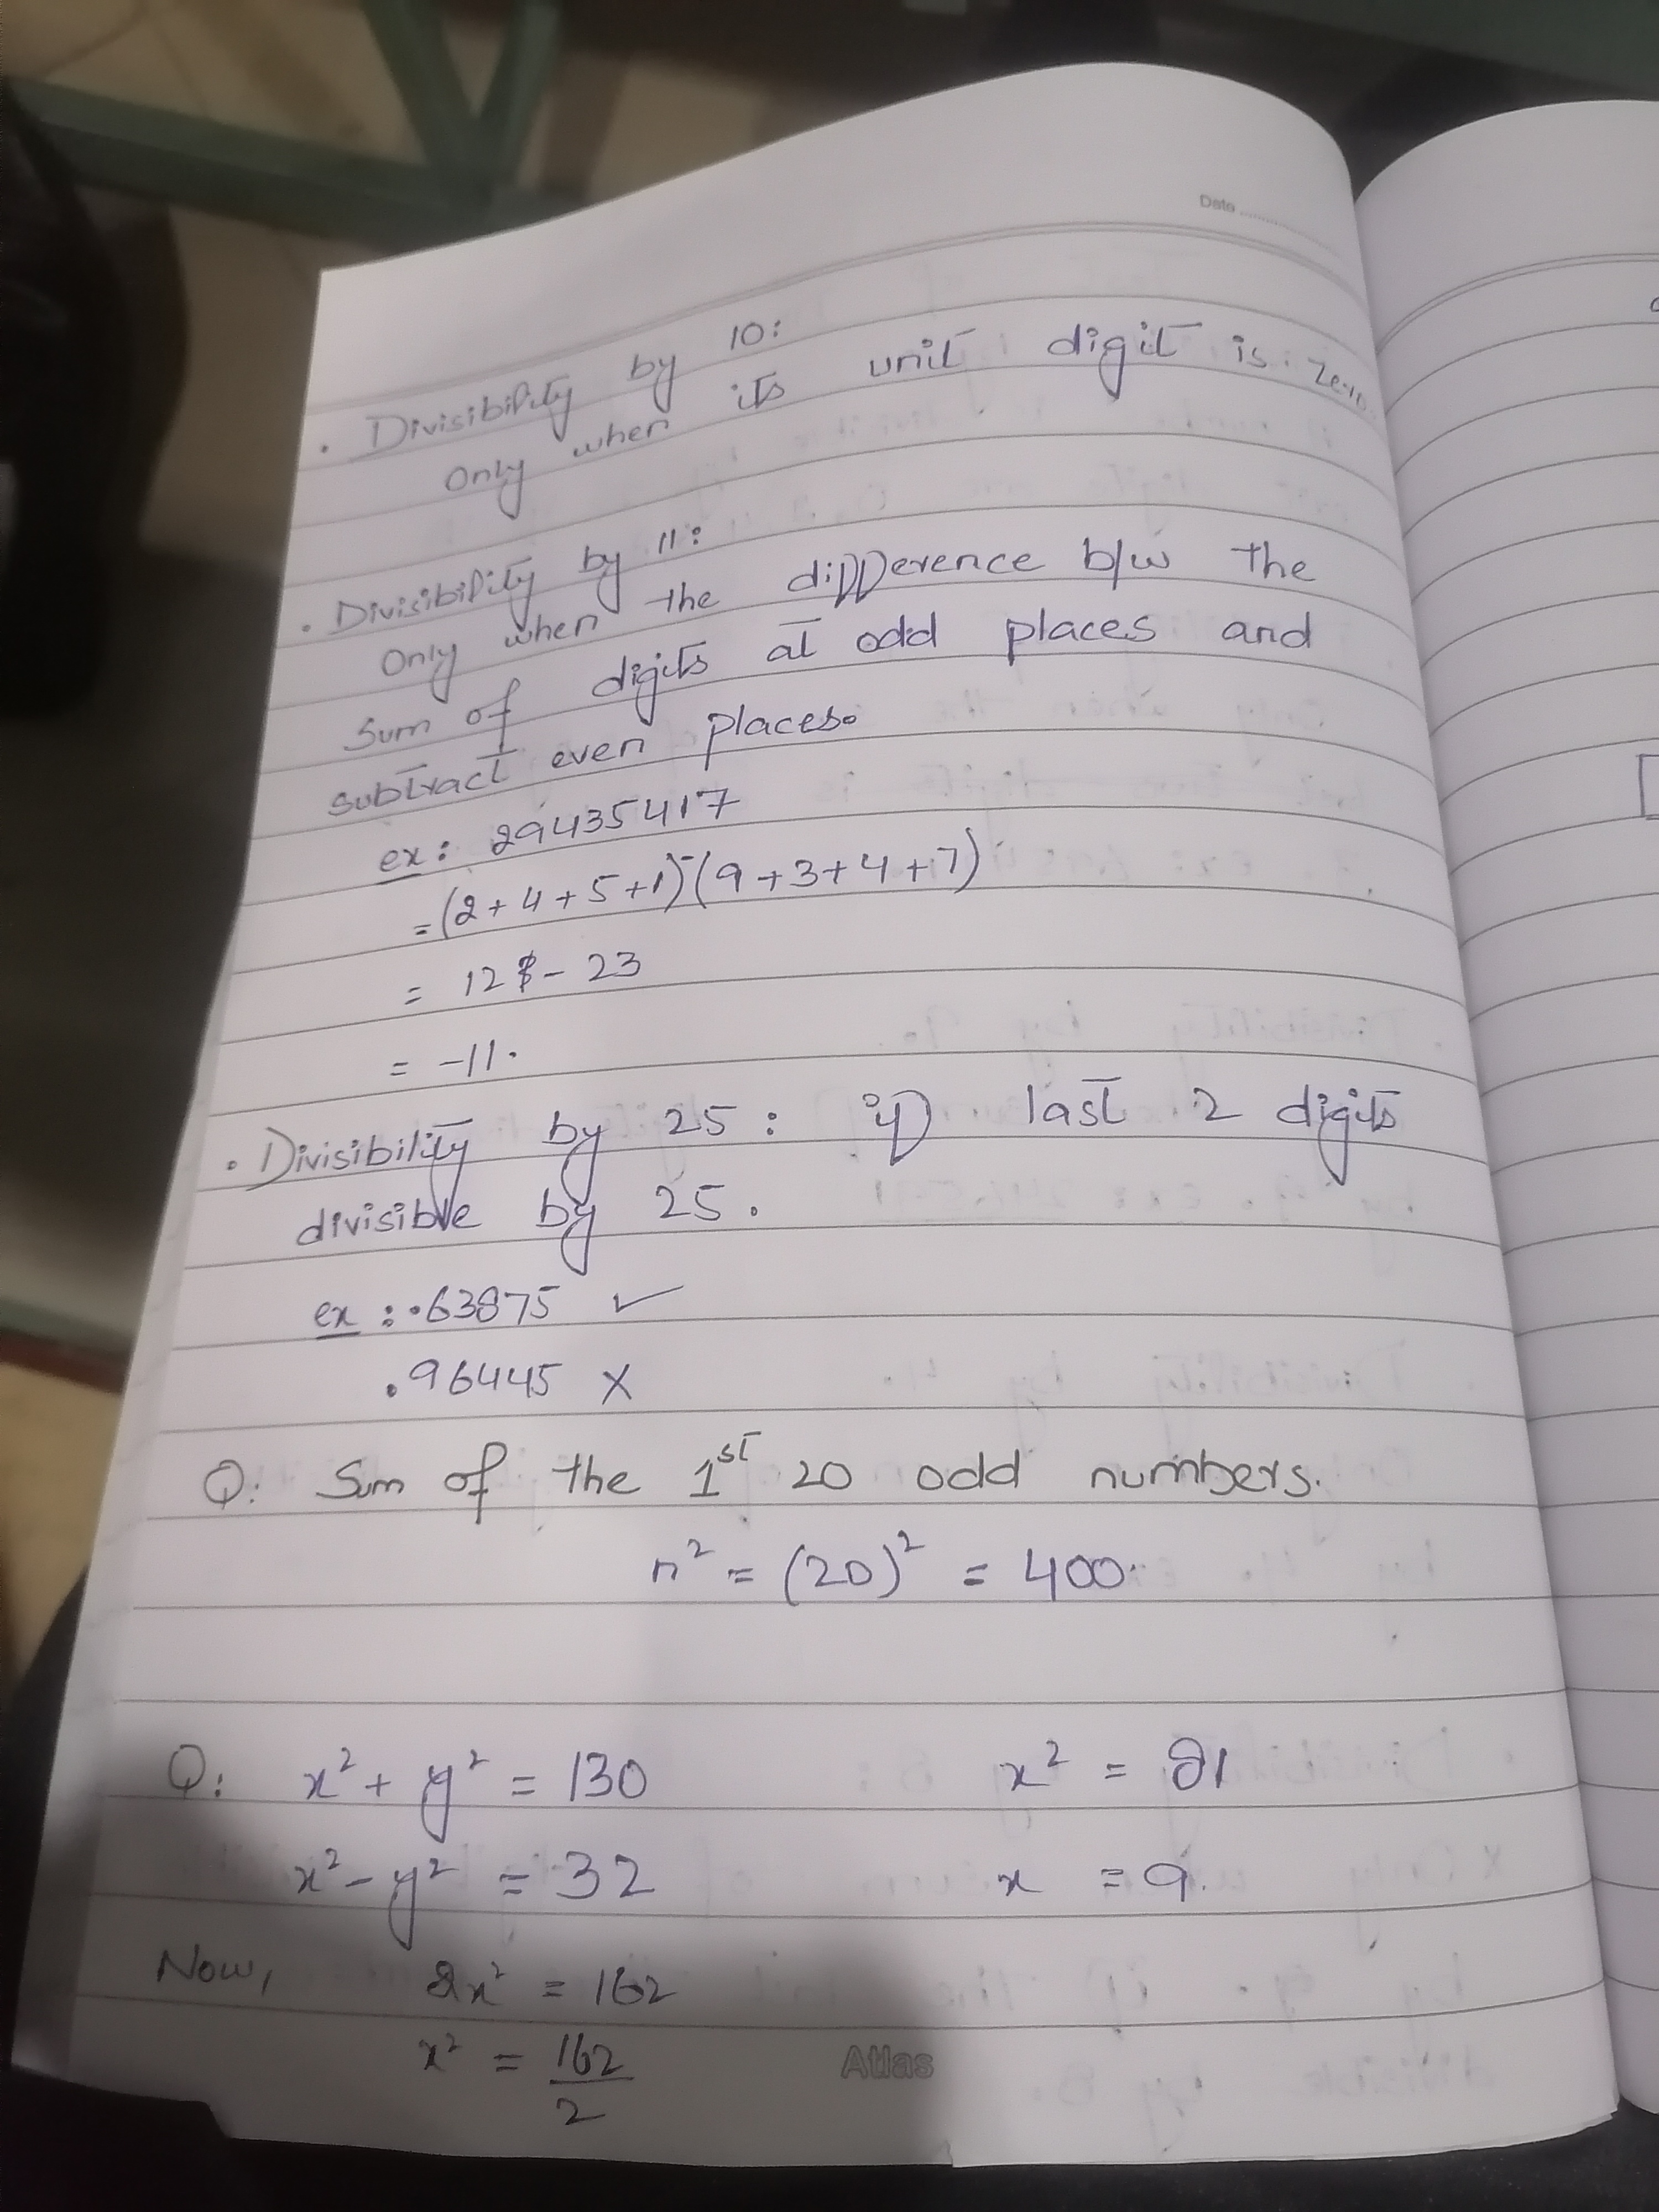 Date
• Divisibility by 10:
Only when its unit digit is zero.
• Divisibility by 11:
Only when the difference b/w the
sum of digits at odd places and
subtract even places.
ex: 29435417
= (2+4+5+1)-(9+3+4+7)
= 12 - 23
= -11.
• Divisibility by 25: if last 2 digits
divisible by 25.
ex: •63875 ✓
•96445 X
Q: Sum of the 1st 20 odd numbers.
n² = (20)² = 400.
Q: x² + y² = 130
x² - y² = 32
Now, 2x² = 162
x² = 162/2
x² = 81
x = 9.
Atlas